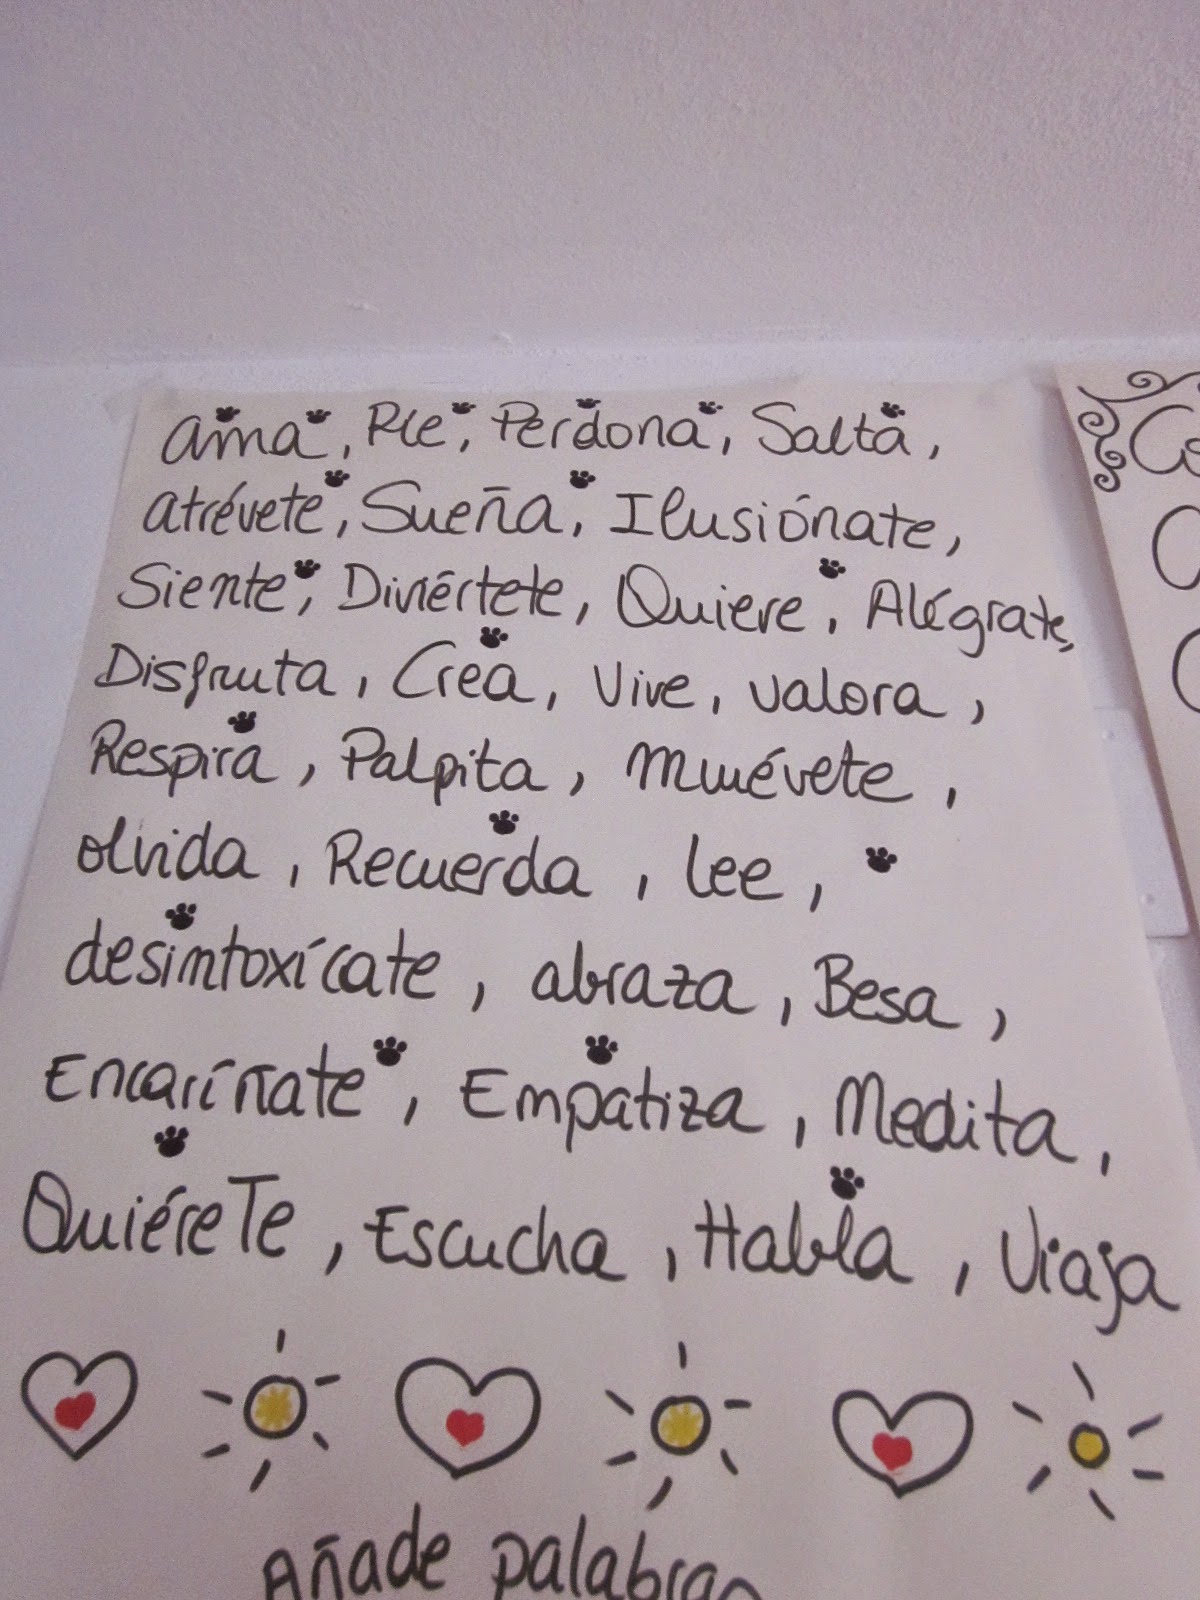 ama, Rie, Perdona, Salta,
atrévete, Sueña, Ilusiónate,
Siente, Diviértete, Quiere, Alégrate,
Disfruta, Crea, Vive, valora,
Respira, Palpita, Muévete,
olvida, Recuerda, lee,
desintoxícate, abraza, Besa,
Encaríñate, Empatiza, Medita,
QuiéreTe, Escucha, Habla, Viaja
Añade palabras